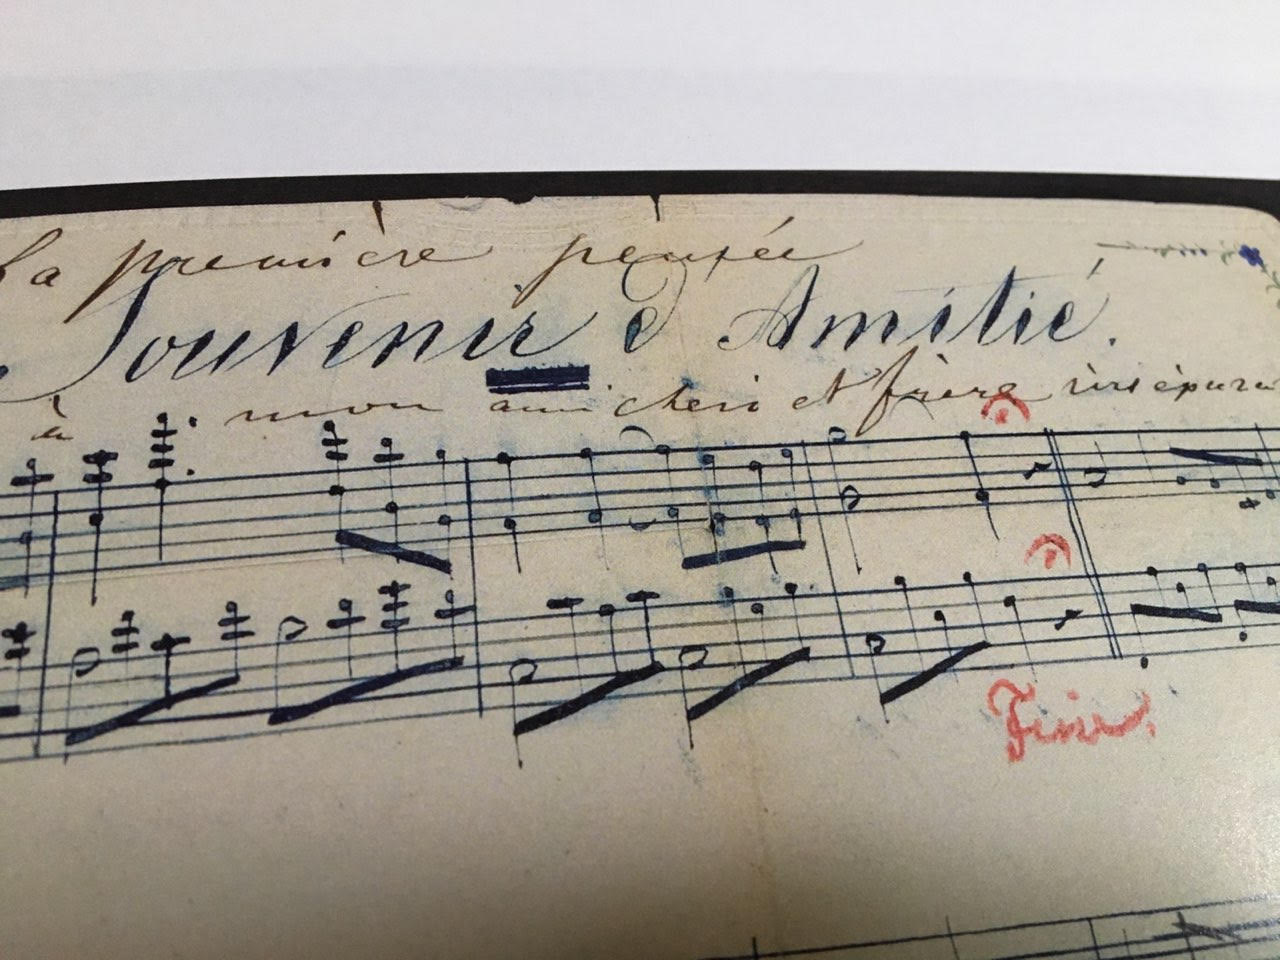 La première pensée
Souvenir d'Amitié.
à mon ami cheri et frère
Fine.